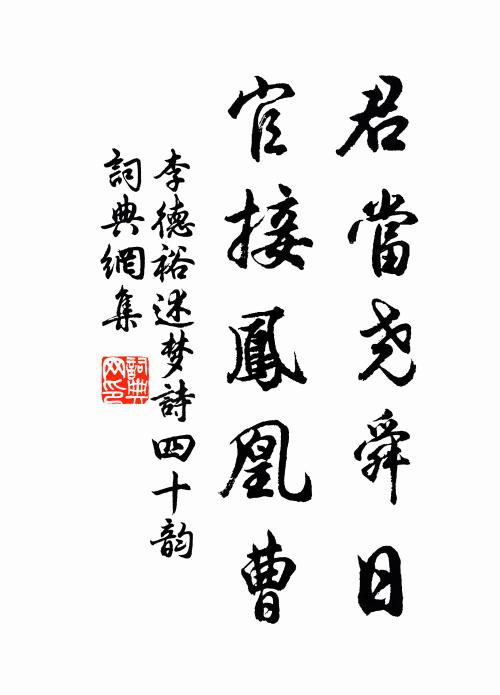 君當尧舜日
官接鳳凰曹
李德裕述梦詩四十韵
詞典網集
詞典网印